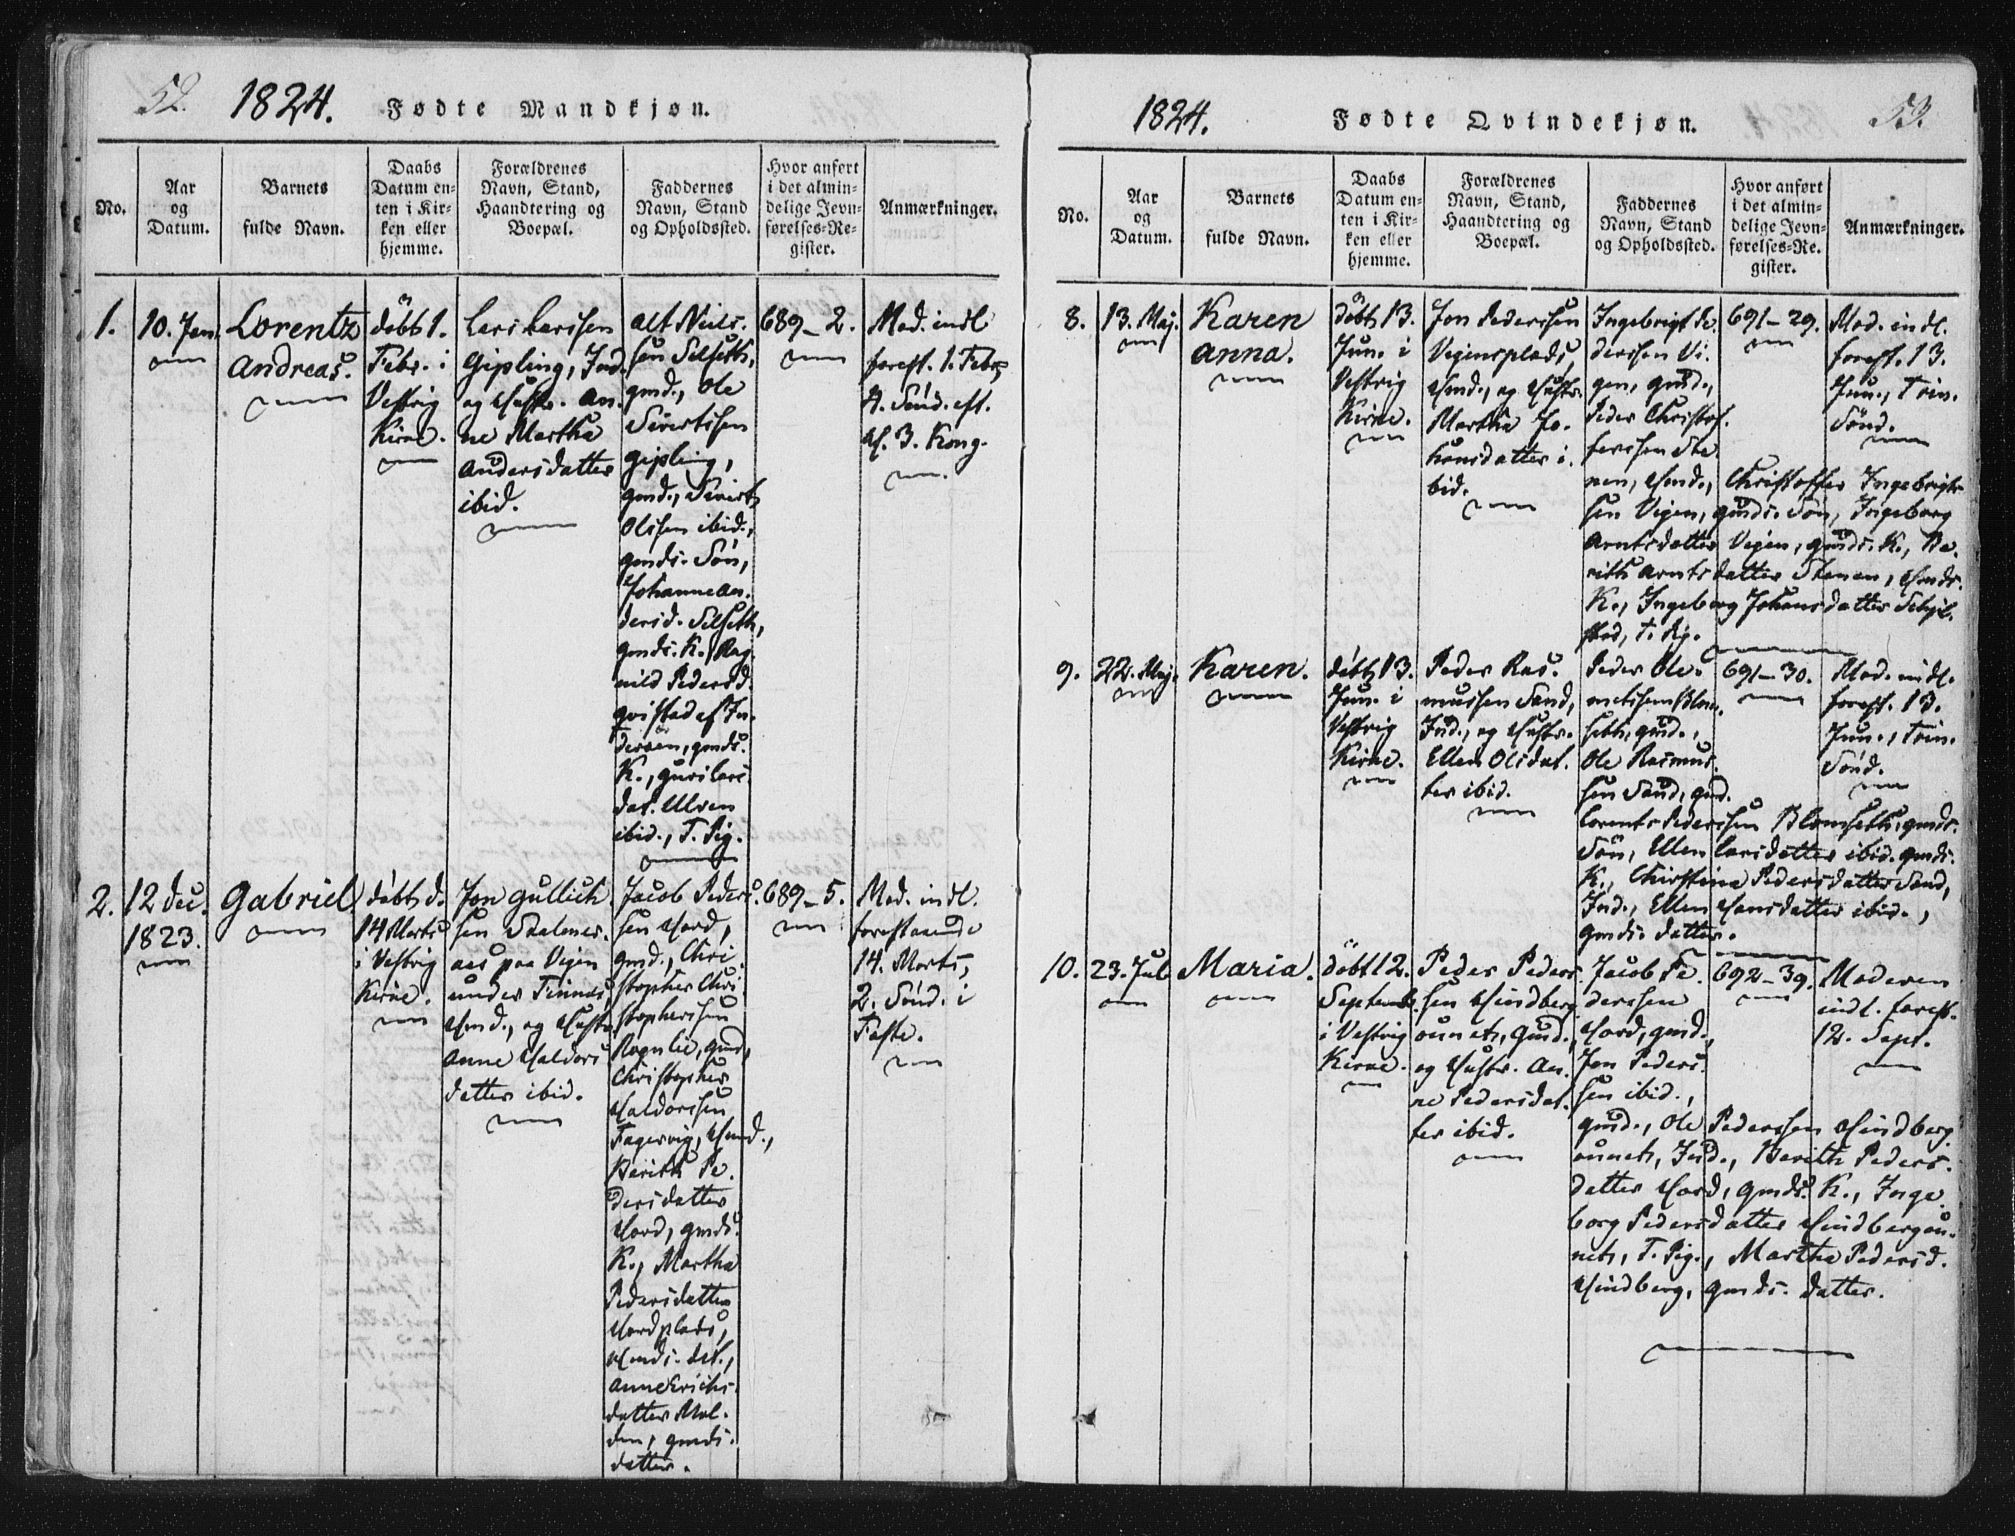 52. 1824. Fødte Mandkjøn.
No.
Aar
og
Datum.
Barnets
fulde Navn.
Daabs
Datum en-
ten i Kir-
ken eller
hjemme.
Forældrenes
Navn, Stand,
Haandtering og
Boepæl.
Faddernes
Navn, Stand
og Opholdssted.
Hvor anført
i det almin-
delige Jevn-
førelses-Re-
gister.
Anmærkninger.
1.
10. Jan.
Lorentz
Andreas.
döbt 1.
Febr. i
Vestvig
Kirke.
Lars Larssen
Gipling, Ind.
og Hustr. An-
ne Martha
Andersdatter
ibid.
Alt Niels-
sen Selseth,
gmd., Ole
Sivertssen
Gipling,
gmd., Sivert
Olssen ibid.,
gmds. Sön,
Johanne An-
dersd. Selseth,
gmds. K., Rag-
nild Pedersd.
Qvistad af In-
deröen, gmds.
K., Guri Lars-
dat. Ulven
ibid., T. Pig.
689-2.
Mod. indl
forest. 1. Febr,
4. Sönd. eft.
H. 3. Kong.
2.
12 Dec.
1823.
Gabriel
döbt d.
14 Marts
i Vestvig
Kirke.
Jon Gullich-
sen Saalmer-
aas paa Vigen
under Finnes,
Hmd., og Hustr.
Anne Haldors
datter ibid.
Jacob Peders-
sen Hord,
gmd., Chri-
stopher Chri-
stophersen
Rognlie, gmd,
Christopher
Haldorssen
Fagervig, Hmd.,
Berith Pe-
dersdatter
Hord, gmds.
K., Martha
Pedersdatter
Hordplads,
Hmds. dat.,
Anne Erichs-
datter Mol-
den, gmds.
datter.
689-5.
Mod. indl.
forestaaende
14. Marts,
2. Sönd. i
Faste.
1824. Fødte Qvindekjøn. 53.
No.
Aar
og
Datum.
Barnets
fulde Navn.
Daabs
Datum en-
ten i Kir-
ken eller
hjemme.
Forældrenes
Navn, Stand,
Haandtering og
Boepæl.
Faddernes
Navn, Stand
og Opholdssted.
Hvor anført
i det almin-
delige Jevn-
førelses-Re-
gister.
Anmærkninger.
8.
13. Maj.
Karen
Anna.
döbt 13.
Jun. i
Vestvig
Kirke.
Jon Pederssen
Vigensplads,
Hmd., og Hustr.
Martha Jo-
hansdatter i-
bid.
Ingebrigt Pe-
derssen Vi-
gen, gmd.,
Peder Christof-
ferssen Ste-
nen, Hmd., Christoffer Ingebrigt-
sen Vigen, gmds. Sön, Ingeborg
Arntsdatter Vigen, gmds. K., Be-
rith Arntsdatter Stenen, Hmds.
K., Ingeborg Johansdatter Schjel-
stad, t. Pig.
691-29.
Mod. indl.
forest. 13.
Jun., Trin.
Sönd.
9.
22. Maj.
Karen.
döbt 13.
Jun. i
Vestvig
Kirke.
Peder Ras-
mussen Sand,
Ind., og Hustr.
Ellen Olsdat-
ter ibid.
Peder Ole-
metssen Blom-
seth, gmd.,
Ole Rasmus-
sen Sand, gmd.
Lorents Pederssen Blomseth, gmds.
Sön, Ellen Larsdatter ibid. gmds.
K., Christina Pedersdatter Sand,
Ind., Ellen Hansdatter ibid.,
gmds. datter.
691-30.
Mod. indl.
forest. 13.
Jun., Trin.
Sönd.
10.
23. Jul.
Maria.
döbt 12.
Septemb.
i Vestvig
Kirke.
Peder Peders-
sen Hindberg-
ounet, gmd.,
og Hustr. An-
ne Pedersdat-
ter ibid.
Jacob Pe-
derssen
Hord, gmd.,
Jon Peders-
sen ibid.,
gmd., Ole Pederssen Hindberg-
ounet, Ind., Berith Peders-
datter Hord, gmds. K., Inge-
borg Pedersdatter Hindbergou-
net, T. Pig., Martha Pedersd.
Hindberg, gmds. datter.
692-39.
Moderen
indl. forest.
12. Sept.